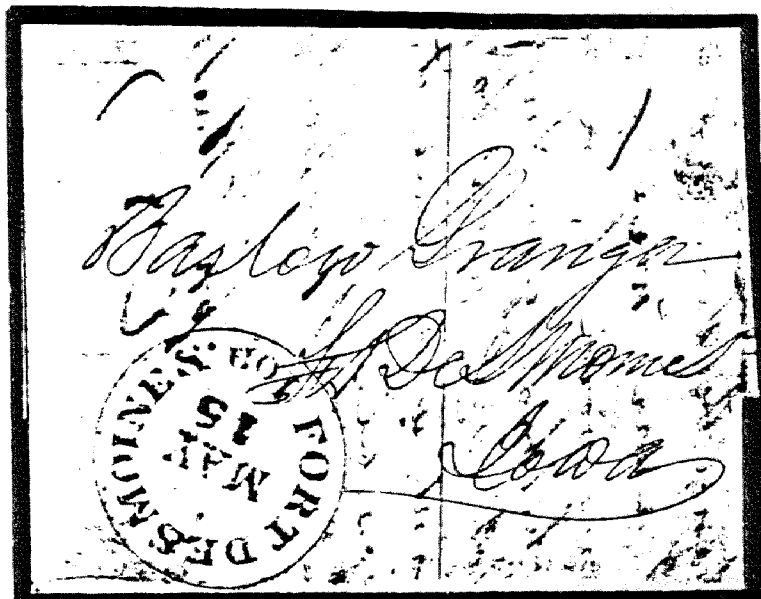 Barlow Granger
Ft Des Moines
Iowa
FORT DES MOINES
MAY
15